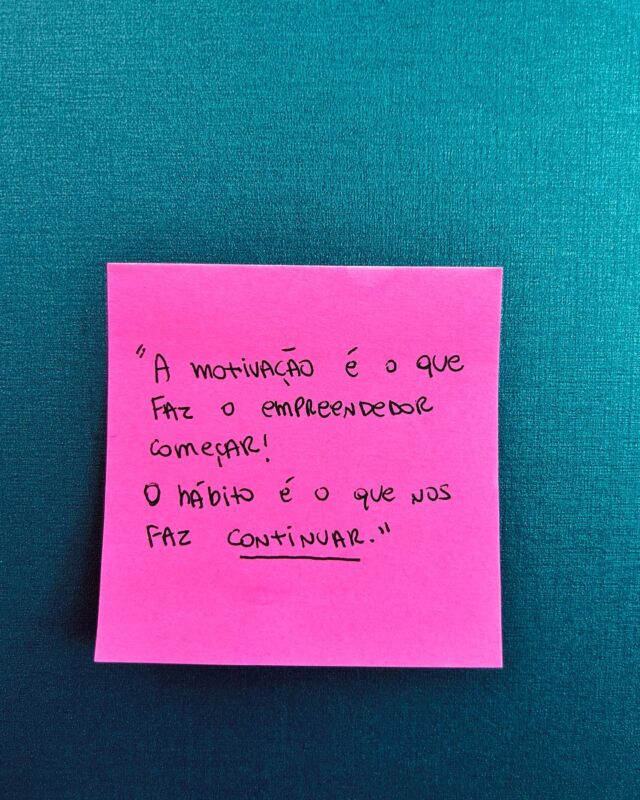 "A motivação é o que
faz o empreendedor
começar!
O hábito é o que nos
faz continuar."